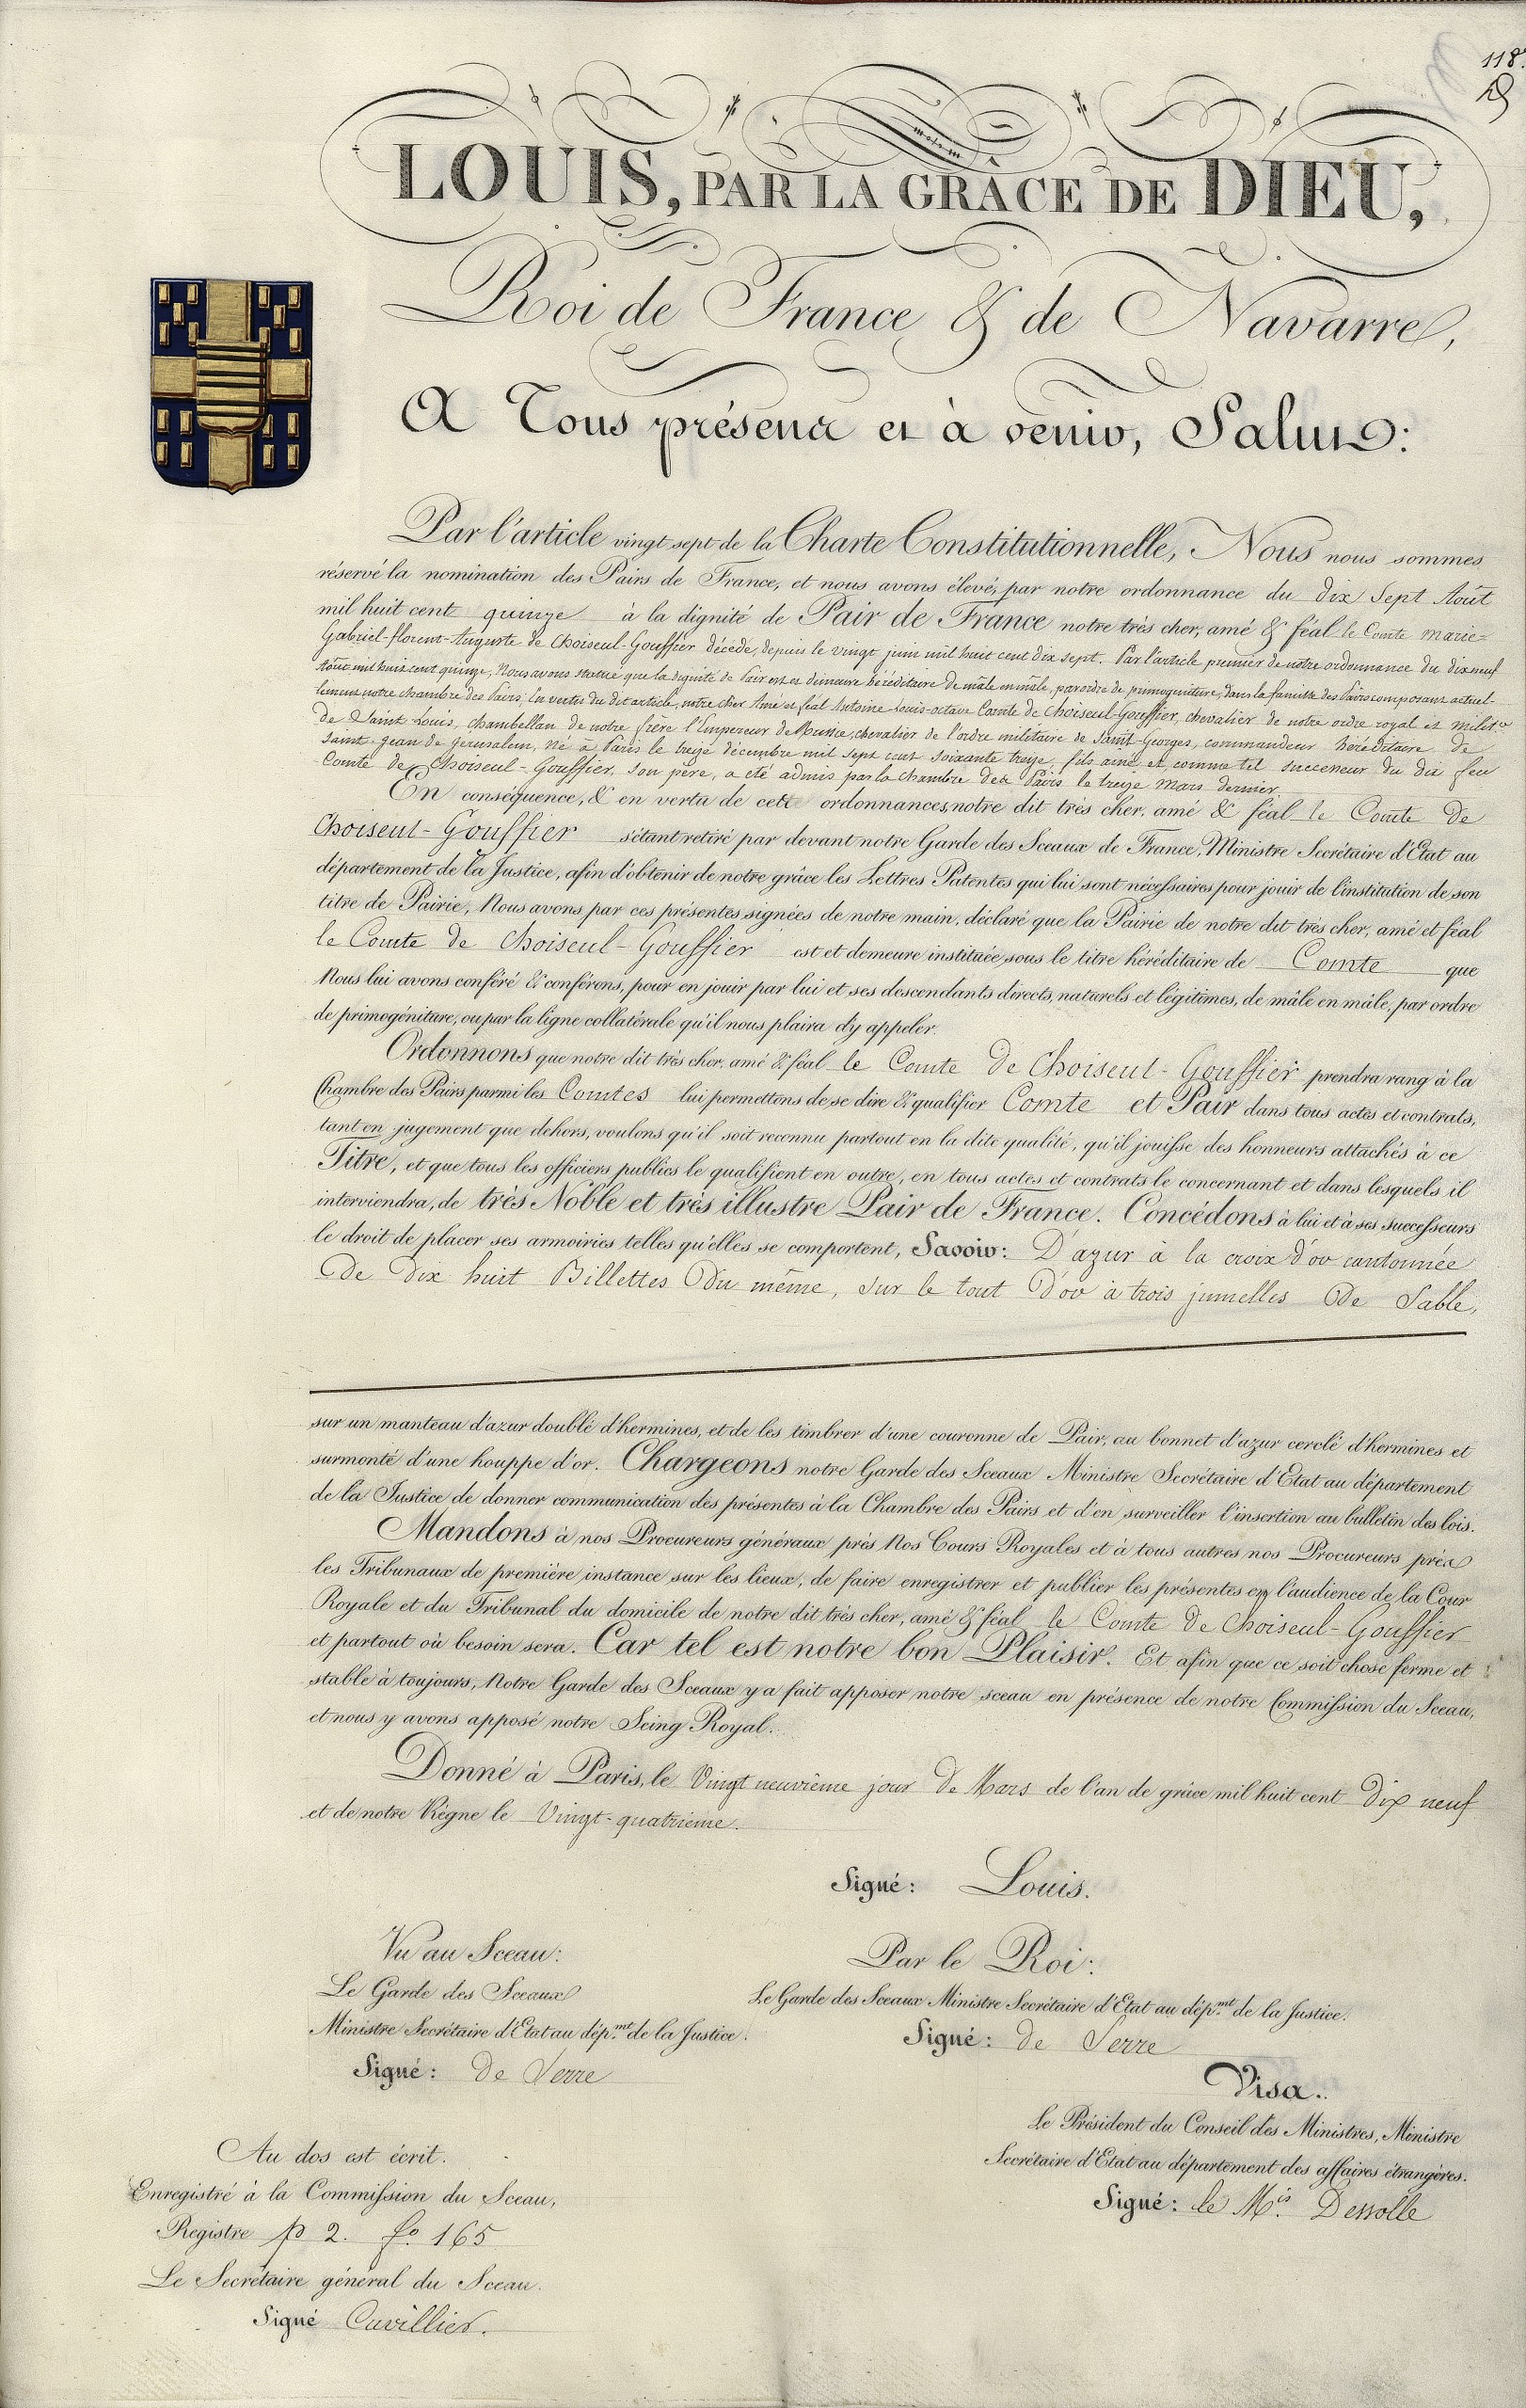 118.
LOUIS, PAR LA GRÂCE DE DIEU,
Roi de France & de Navarre,
A Tous présens et à venir, Salut:
Par l'article vingt sept de la Charte Constitutionnelle, Nous nous sommes
réservé la nomination des Pairs de France, et nous avons élevé, par notre ordonnance du dix sept Août
mil huit cent quinze à la dignité de Pair de France notre très cher, amé & féal le Comte Marie=
Gabriel-florent-Auguste de Choiseul-Gouffier décédé, depuis le vingt juin mil huit cent dix sept. Par l'article premier de notre ordonnance du dix neuf
Août mil huit cent quinze, Nous avons statué que la dignité de Pair est et demeure héréditaire de mâle en mâle, par ordre de primogéniture, dans la famille des Pairs composant actuel-
lement notre chambre des Pairs, En vertu du dit article, notre cher Amé et féal Antoine-Louis-octave Comte de Choiseul-Gouffier, chevalier de notre ordre royal et milit.re
de Saint Louis, chambellan de notre frère l'Empereur de Russie, chevalier de l'ordre militaire de Saint-Georges, commandeur héréditaire de
Saint-Jean de Jérusalem, né à Paris le treize décembre mil sept cent soixante treize, fils aîné et comme tel successeur du dit feu
Comte de Choiseul-Gouffier, son père, a été admis par la chambre des Pairs le treize Mars dernier.
En conséquence, & en vertu de cette ordonnances, notre dit très cher, amé & féal le Comte de
Choiseul-Gouffier s'étant retiré par devant notre Garde des Sceaux de France, Ministre Secrétaire d'Etat au
département de la Justice, afin d'obtenir de notre grâce les Lettres Patentes qui lui sont nécessaires pour jouir de l'institution de son
titre de Pairie, Nous avons par ces présentes signées de notre main, déclaré que la Pairie de notre dit très cher, amé et féal
le Comte de Choiseul-Gouffier est et demeure instituée sous le titre héréditaire de Comte que
Nous lui avons conféré & conférons, pour en jouir par lui et ses descendants directs, naturels et légitimes, de mâle en mâle, par ordre
de primogéniture, ou par la ligne collatérale qu'il nous plaira d'y appeler.
Ordonnons que notre dit très cher, amé & féal le Comte de Choiseul-Gouffier prendra rang à la
Chambre des Pairs parmi les Comtes lui permettons de se dire & qualifier Comte et Pair dans tous actes et contrats,
tant en jugement que dehors, voulons qu'il soit reconnu partout en la dite qualité, qu'il jouisse des honneurs attachés à ce
Titre, et que tous les officiers publics le qualifient en outre, en tous actes et contrats le concernant et dans lesquels il
interviendra, de très Noble et très illustre Pair de France. Concédons à lui et à ses successeurs
le droit de placer ses armoiries telles qu'elles se comportent, Savoir: D'azur à la croix d'or cantonnée
de dix huit Billettes du même, sur le tout d'or à trois jumelles de Sable,
sur un manteau d'azur doublé d'hermines, et de les timbrer d'une couronne de Pair, au bonnet d'azur cerclé d'hermines et
surmonté d'une houppe d'or. Chargeons notre Garde des Sceaux Ministre Secrétaire d'Etat au département
de la Justice de donner communication des présentes à la Chambre des Pairs et d'en surveiller l'insertion au bulletin des lois.
Mandons à nos Procureurs généraux près Nos Cours Royales et à tous autres nos Procureurs près
les Tribunaux de première instance sur les lieux, de faire enregistrer et publier les présentes en l'audience de la Cour
Royale et du Tribunal du domicile de notre dit très cher, amé & féal le Comte de Choiseul-Gouffier
et partout où besoin sera. Car tel est notre bon Plaisir. Et afin que ce soit chose ferme et
stable à toujours, Notre Garde des Sceaux y a fait apposer notre sceau en présence de notre Commission du Sceau,
et nous y avons apposé notre Seing Royal.
Donné à Paris, le Vingt neuvième jour de Mars de l'an de grâce mil huit cent dix neuf
et de notre Règne le Vingt-quatrième.
Signé: Louis.
Vu au Sceau:
Le Garde des Sceaux
Ministre Secrétaire d'Etat au dép.mt de la Justice.
Signé: de Serre
Par le Roi:
Le Garde des Sceaux Ministre Secrétaire d'Etat au dép.mt de la Justice.
Signé: de Serre
Visa.
Le Président du Conseil des Ministres, Ministre
Secrétaire d'Etat au département des affaires étrangères.
Signé: le M.is Dessolle
Au dos est écrit.
Enregistré à la Commission du Sceau,
Registre p 2. f.o 165
Le Secrétaire général du Sceau.
Signé Cuvillier.